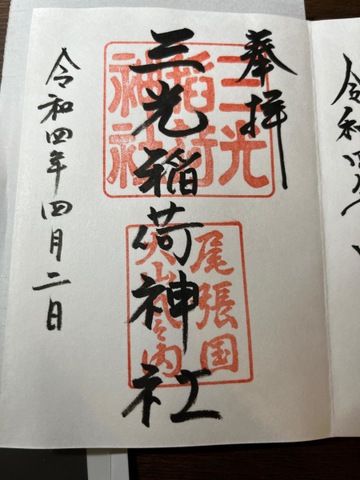 奉拝
三光稲荷神社
令和四年四月二日
三光
稲荷
神社
尾張国
令和四